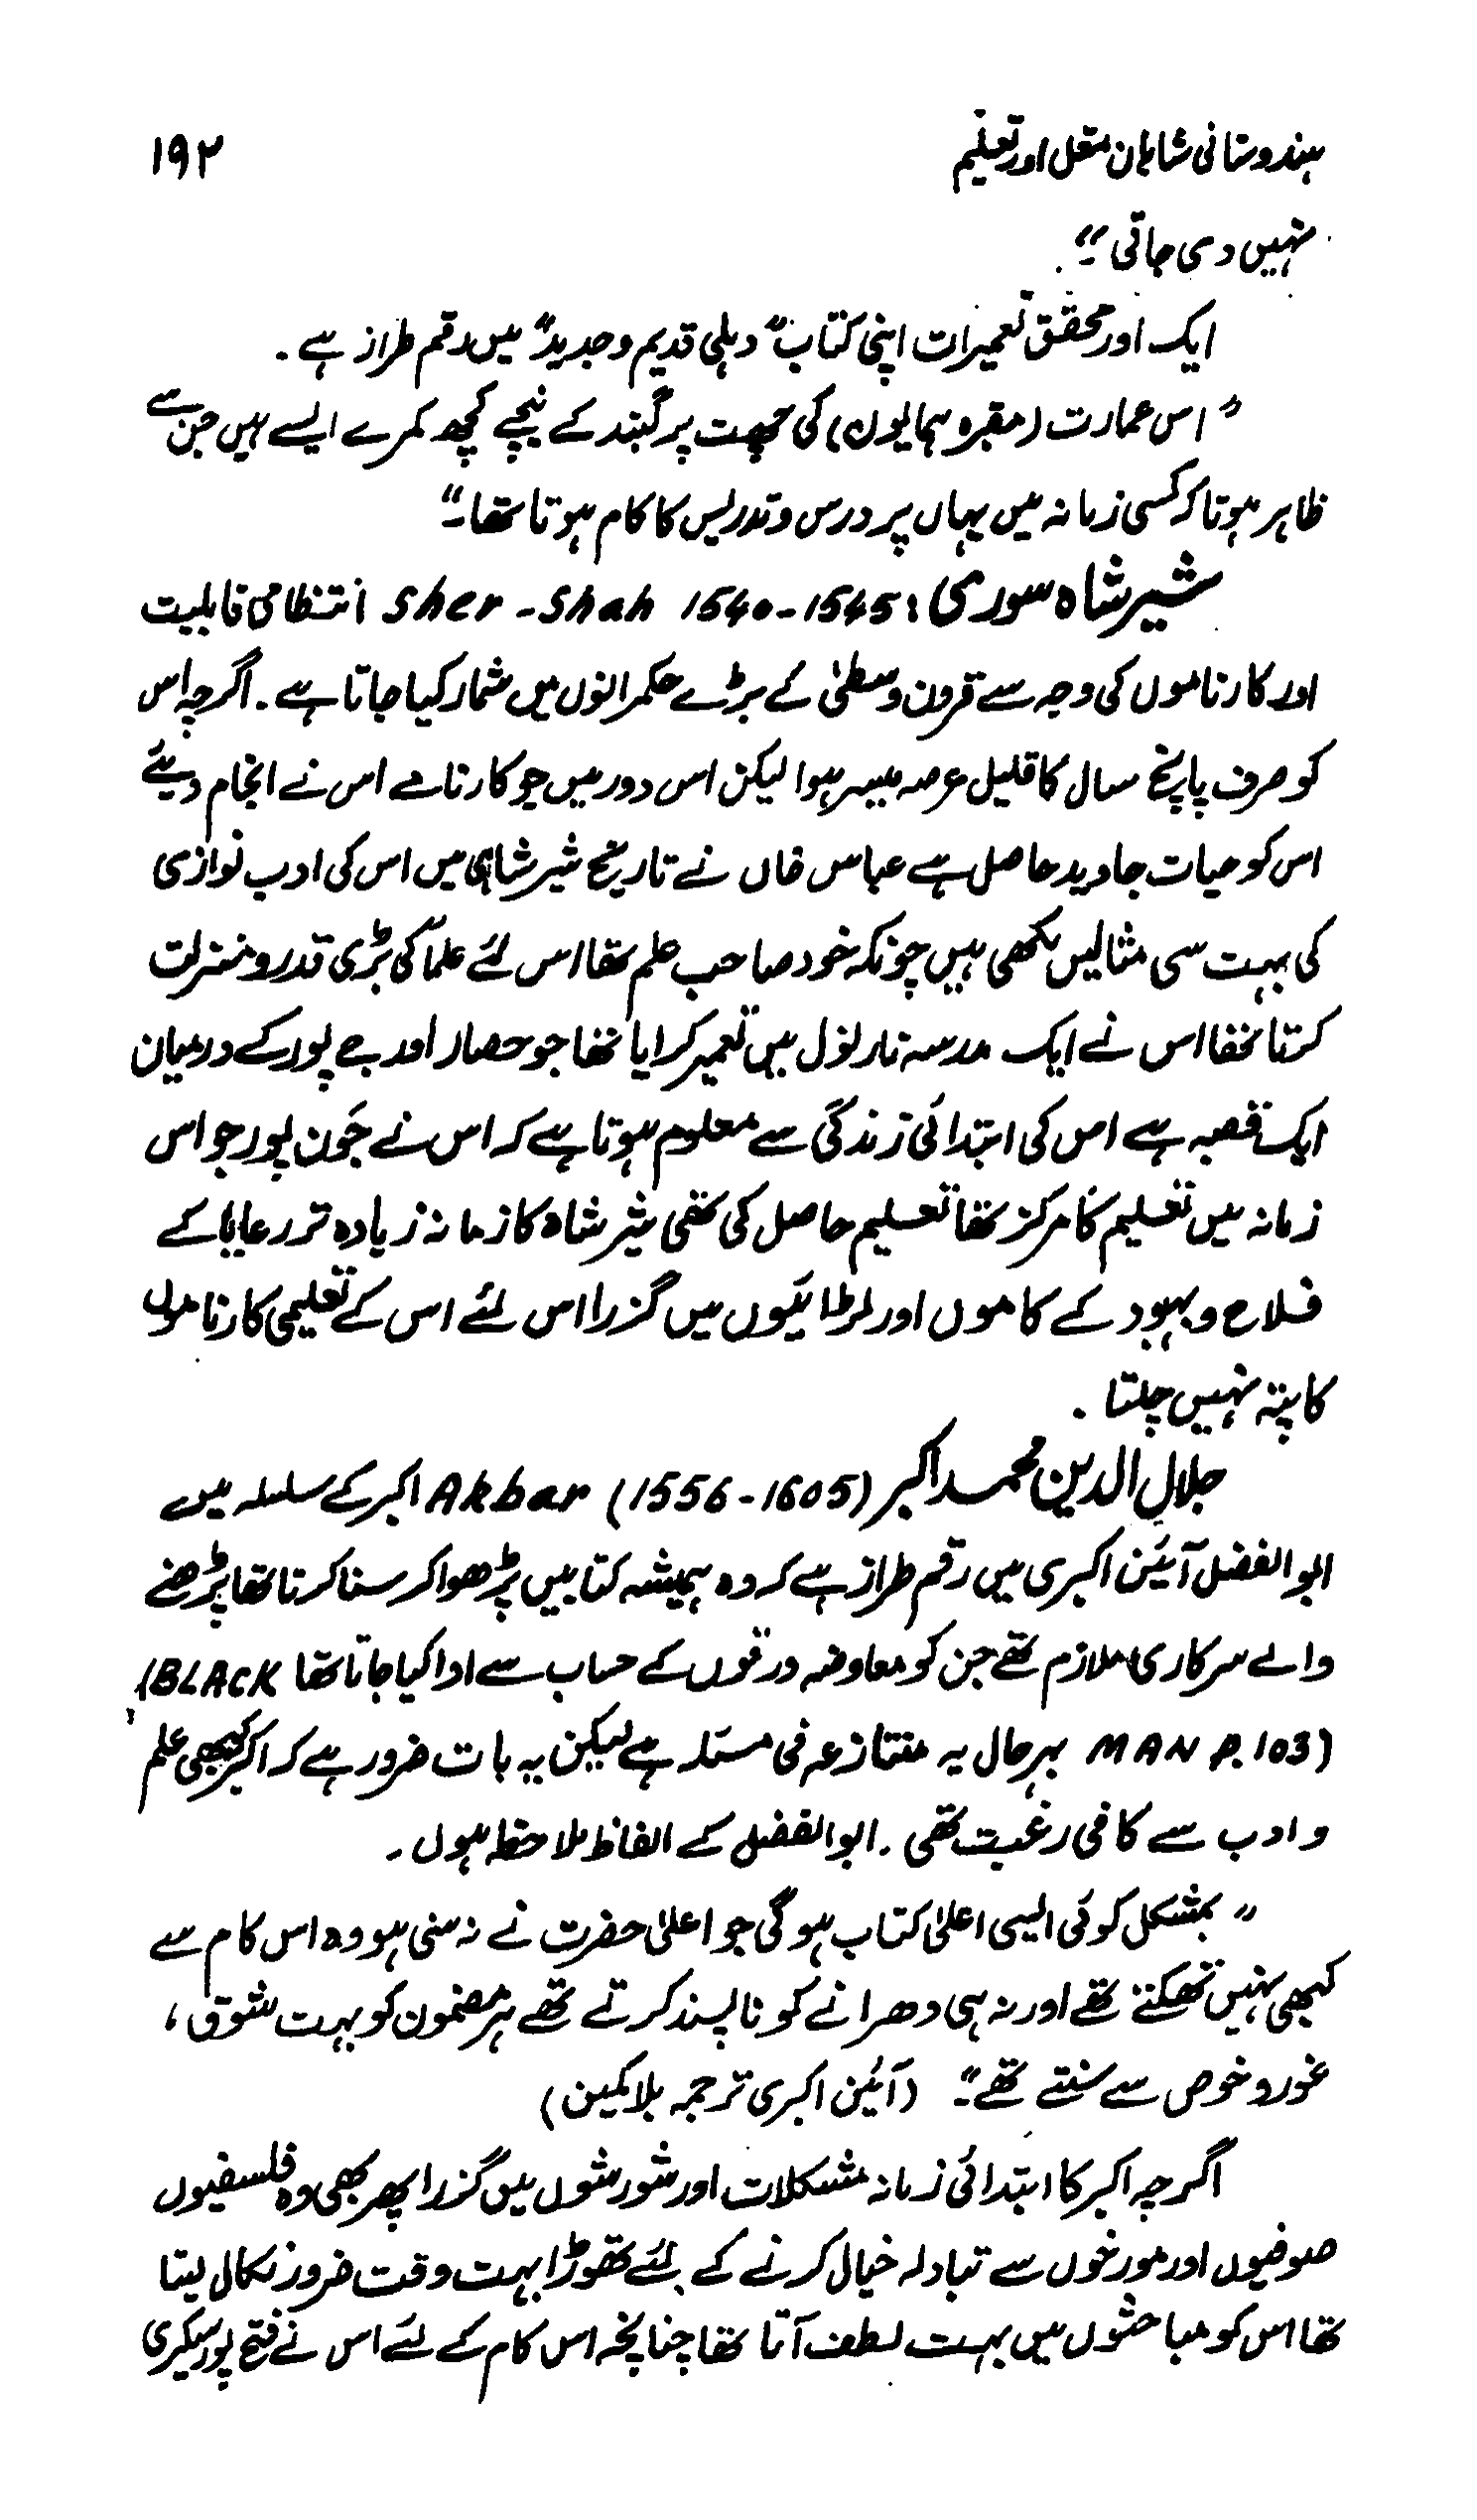 ہندوستانی شاہان مغل اور تعلیم ۱۹۲
نہیں دی جاتی۔"
ایک اور محقق تعمیرات اپنی کتاب "دہلی قدیم و جدید" میں رقم طراز ہے۔
"اس عمارت (مقبرہ ہمایوں) کی چھت پر گنبد کے نیچے کچھ کمرے ایسے ہیں جن سے
ظاہر ہوتا کہ کسی زمانہ میں یہاں پر درس و تدریس کا کام ہوتا تھا۔"
شیر شاہ سوری: 1545-1540 Sher-Shah انتظامی قابلیت
اور کارناموں کی وجہ سے قرون وسطیٰ کے بڑے حکمرانوں میں شمار کیا جاتا ہے۔ اگرچہ اس
کو صرف پانچ سال کا قلیل عرصہ میسر ہوا لیکن اس دور میں جو کارنامے اس نے انجام دیئے
اس کو حیات جاوید حاصل ہے عباس خاں نے تاریخ شیر شاہی میں اس کی ادب نوازی
کی بہت سی مثالیں لکھی ہیں چونکہ خود صاحب علم تھا اس لئے علماً کی بڑی قدر و منزلت
کرتا تھا اس نے ایک مدرسہ نارنول میں تعمیر کرایا تھا جو حصار اور جے پور کے درمیان
ایک قصبہ ہے اس کی ابتدائی زندگی سے معلوم ہوتا ہے کہ اس نے جَون پور جو اس
زمانہ میں تعلیم کا مرکز تھا تعلیم حاصل کی تھی شیر شاہ کا زمانہ زیادہ تر رعایا کے
فلاح و بہبود کے کاموں اور لڑائیوں میں گزرا اس لئے اس کے تعلیمی کارناموں
کا پتہ نہیں چلتا۔
جلال الدین محمد اکبر (1605-1556) Akbar اکبر کے سلسلہ میں
ابوالفضل آئین اکبری میں رقم طراز ہے کہ وہ ہمیشہ کتابیں پڑھوا کر سنا کرتا تھا پڑھنے
والے سرکاری ملازم تھے جن کو معاوضہ ورقوں کے حساب سے ادا کیا جاتا تھا (BLACK
MAN P.103) بہرحال یہ متنازعہ فی مسئلہ ہے لیکن یہ بات ضرور ہے کہ اکبر کو بھی علم
و ادب سے کافی رغبت تھی۔ ابوالفضل کے الفاظ ملاحظہ ہوں۔
"بمشکل کوئی ایسی اعلیٰ کتاب ہوگی جو اعلیٰ حضرت نے نہ سنی ہو وہ اس کام سے
کبھی نہیں تھکتے تھے اور نہ ہی دھرانے کو ناپسند کرتے تھے ہر مضمون کو بہت شوق،
غور و خوص سے سنتے تھے۔" (آئین اکبری ترجمہ بلاکمین)
اگرچہ اکبر کا ابتدائی زمانہ مشکلات اور شورشوں میں گزرا پھر بھی وہ فلسفیوں
صوفیوں اور مورخوں سے تبادلہ خیال کرنے کے لئے تھوڑا بہت وقت ضرور نکال لیتا
تھا اس کو مباحثوں میں بہت لطف آتا تھا چنانچہ اس کام کے لئے اس نے فتح پور سیکری